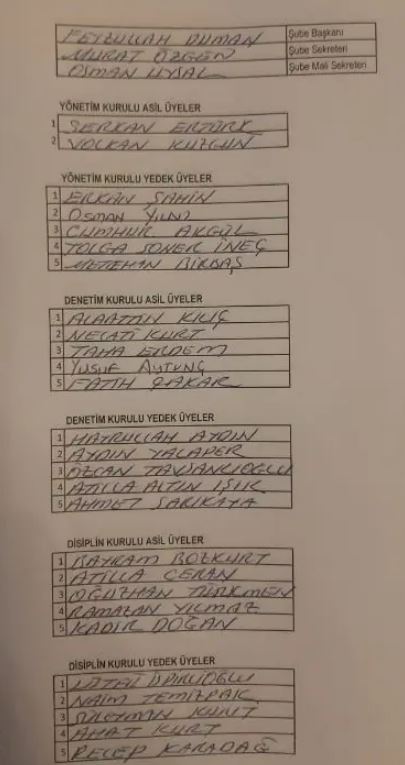 FEYZULLAH DUMAN Şube Başkanı
MURAT ÖZGEN Şube Sekreteri
OSMAN UYSAL Şube Mali Sekreteri
YÖNETİM KURULU ASİL ÜYELER
1 SERKAN ERTÜRK
2 VOLKAN KUZGUN
YÖNETİM KURULU YEDEK ÜYELER
1 ERKAN ŞAHİN
2 OSMAN
3 CUMHUR AKGÜL
4 TOLGA SONER İNEÇ
5 METEHAN BİRBAŞ
DENETİM KURULU ASİL ÜYELER
1 ALAATTİN KILIÇ
2 NECATİ KURT
3 TAHA ERDEM
4 YUSUF AYTUNÇ
5 FATİH ÇAKAR
DENETİM KURULU YEDEK ÜYELER
1 HAYRULLAH AYDIN
2 AYDIN
3 ÖZCAN TAVŞANCIOĞLU
4 ATİLLA ALTIN IŞIK
5 AHMET SARIKAYA
DİSİPLİN KURULU ASİL ÜYELER
1 BAYRAM BOZKURT
2 ATİLLA CERAN
3 OĞUZHAN TÜRKMEN
4 RAMAZAN YILMAZ
5 KADİR DOĞAN
DİSİPLİN KURULU YEDEK ÜYELER
1 LÜTFİ
2 NAİM
3 SÜLEYMAN KURT
4 KURT
5 RECEP KARADAĞ